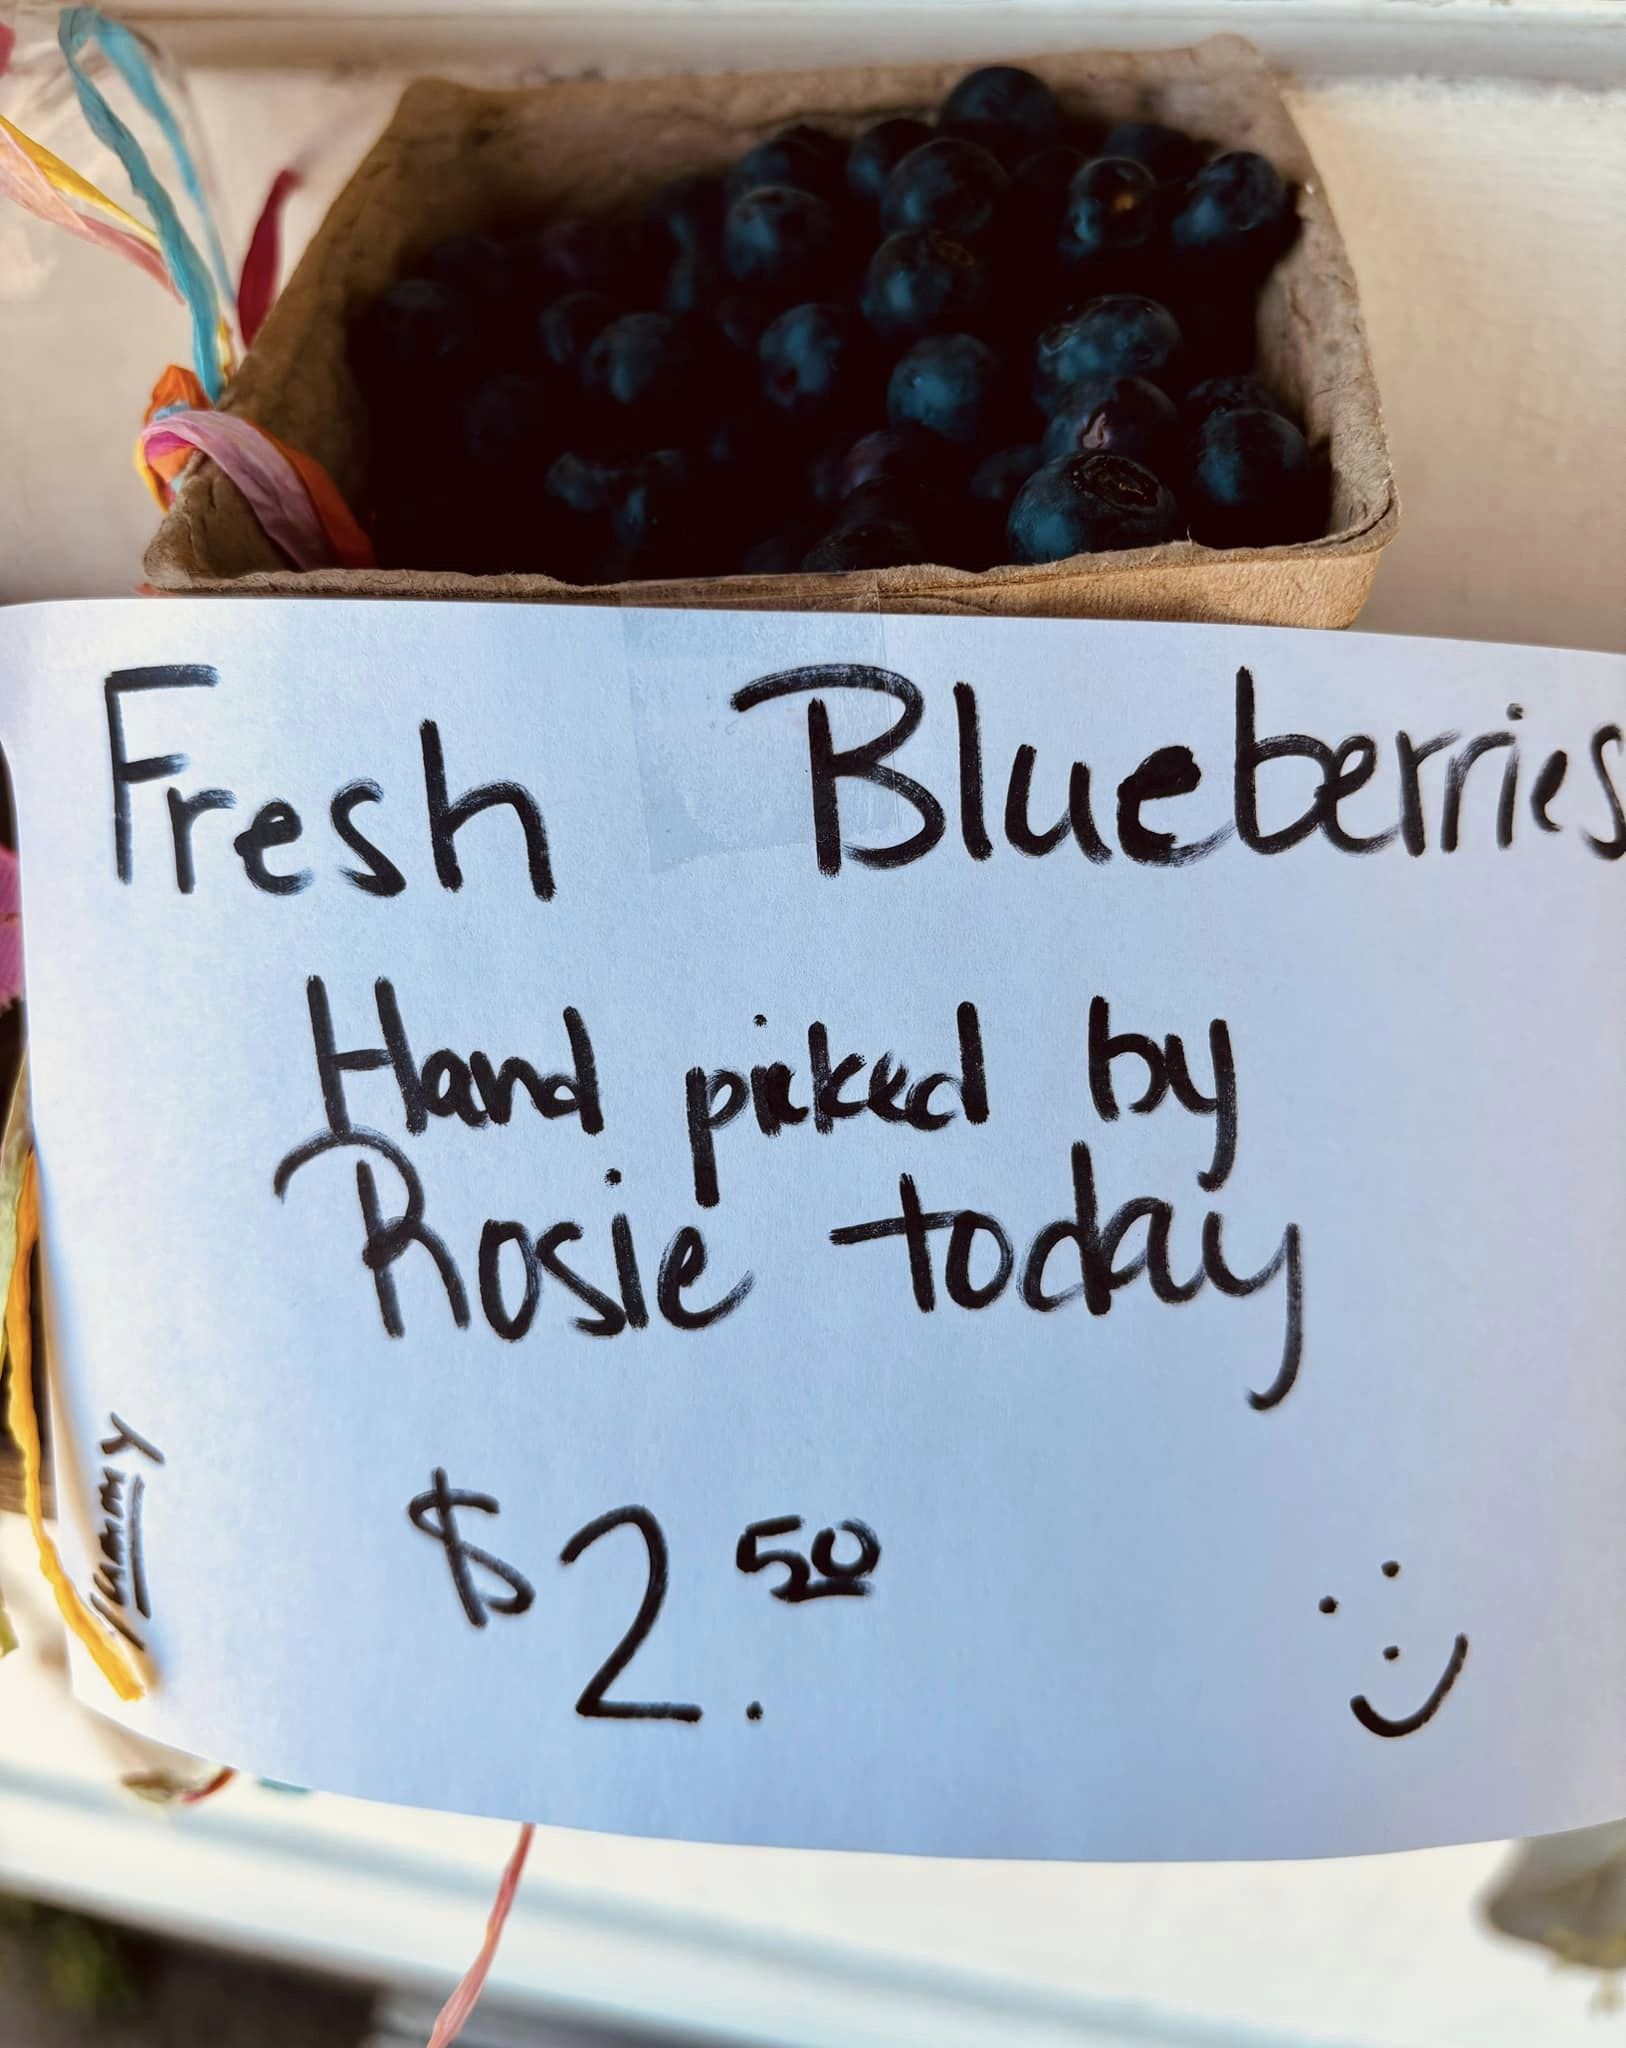 Fresh Blueberries
Hand picked by
Rosie today
$2.50
yummy